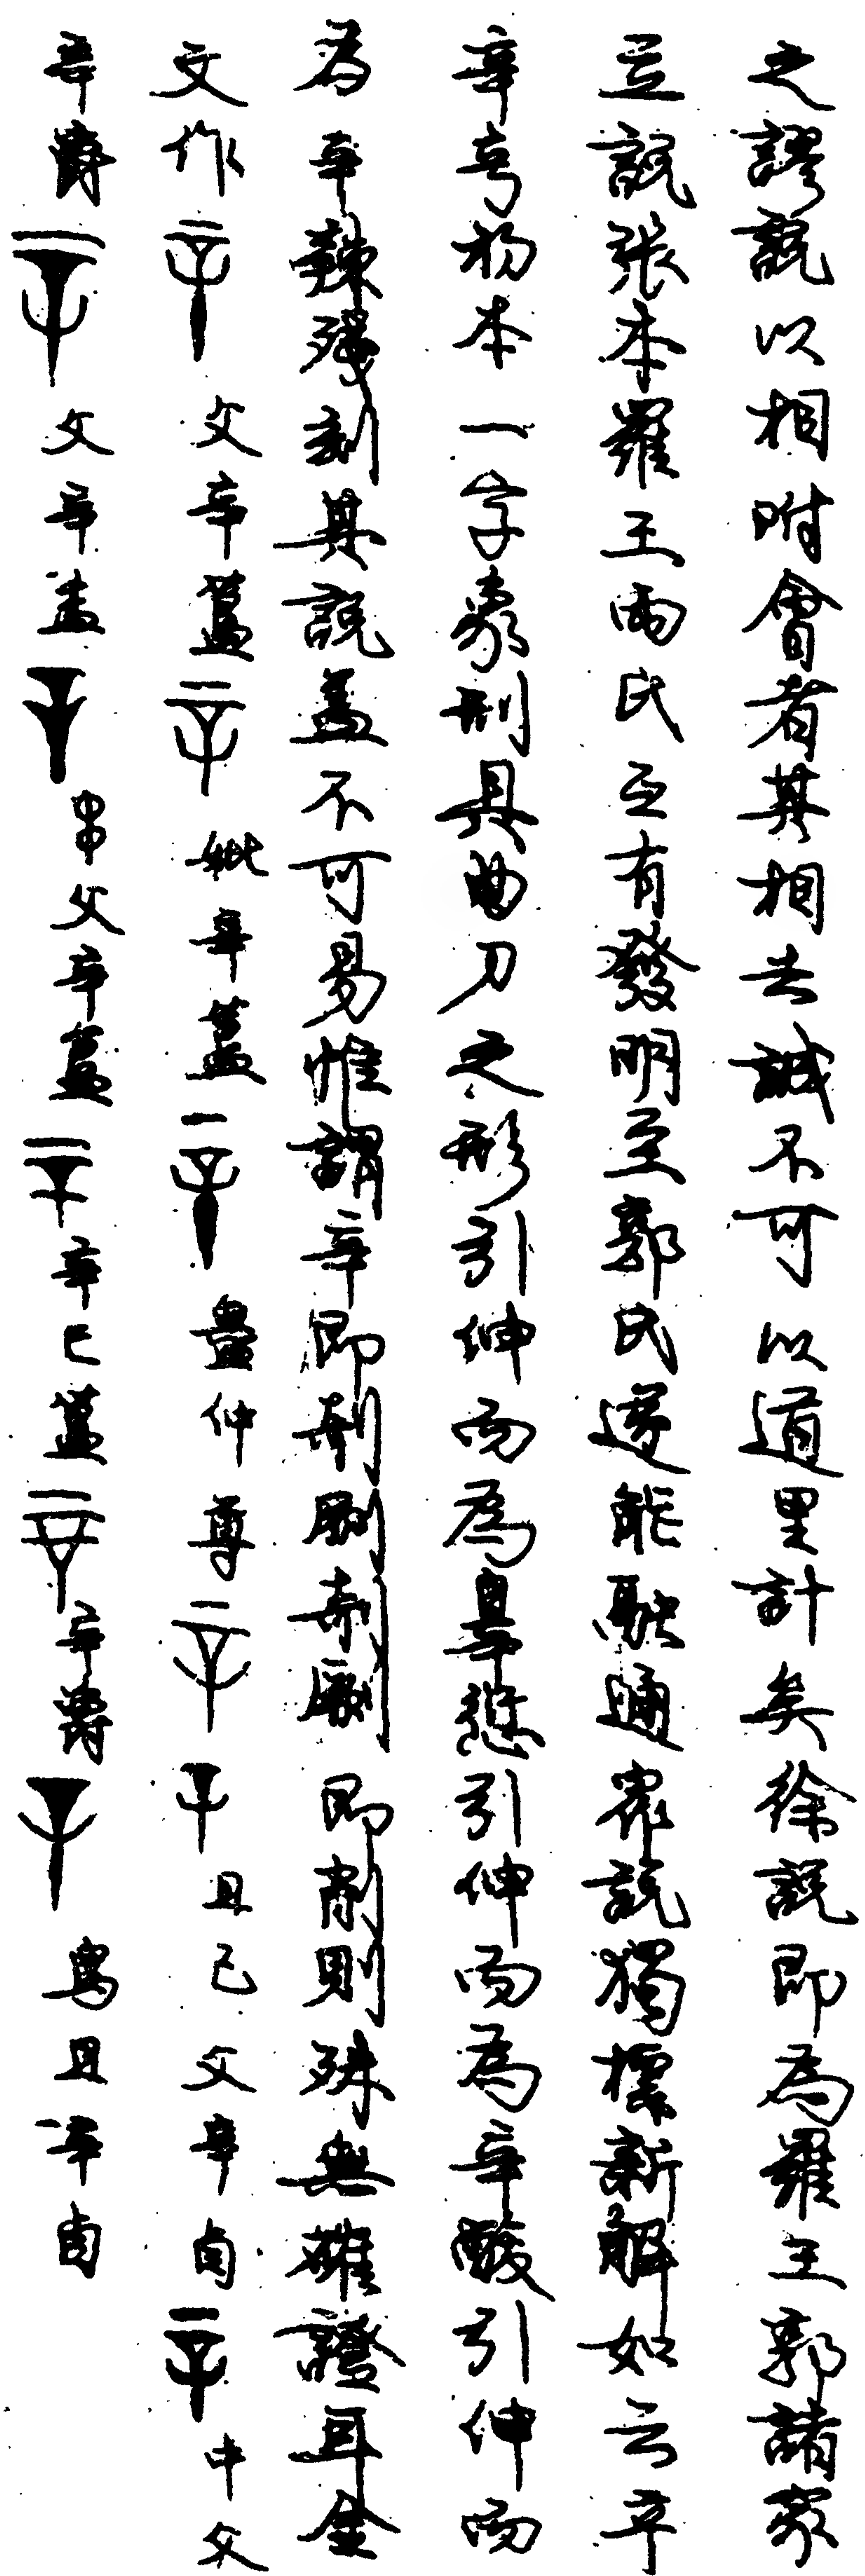 之謬説以相附會者其相去誠不可以道里計矣徐説即為羅王郭諸家
立説張本羅王兩氏亟有發明至郭氏遂能融通眾説獨標新解如云辛
辛䇂初本一字象刑具曲刀之形引伸而為辠愆引伸而為辛酸引伸而
為辛辣殘刻其説蓋不可易惟謂辛即剞劂剞劂即削則殊無確證耳金
文作 父辛簋 妣辛簋 仲尊 且己父辛卣 中父
辛爵 父辛盉 父辛簋 辛巳簋 辛爵 且辛卣